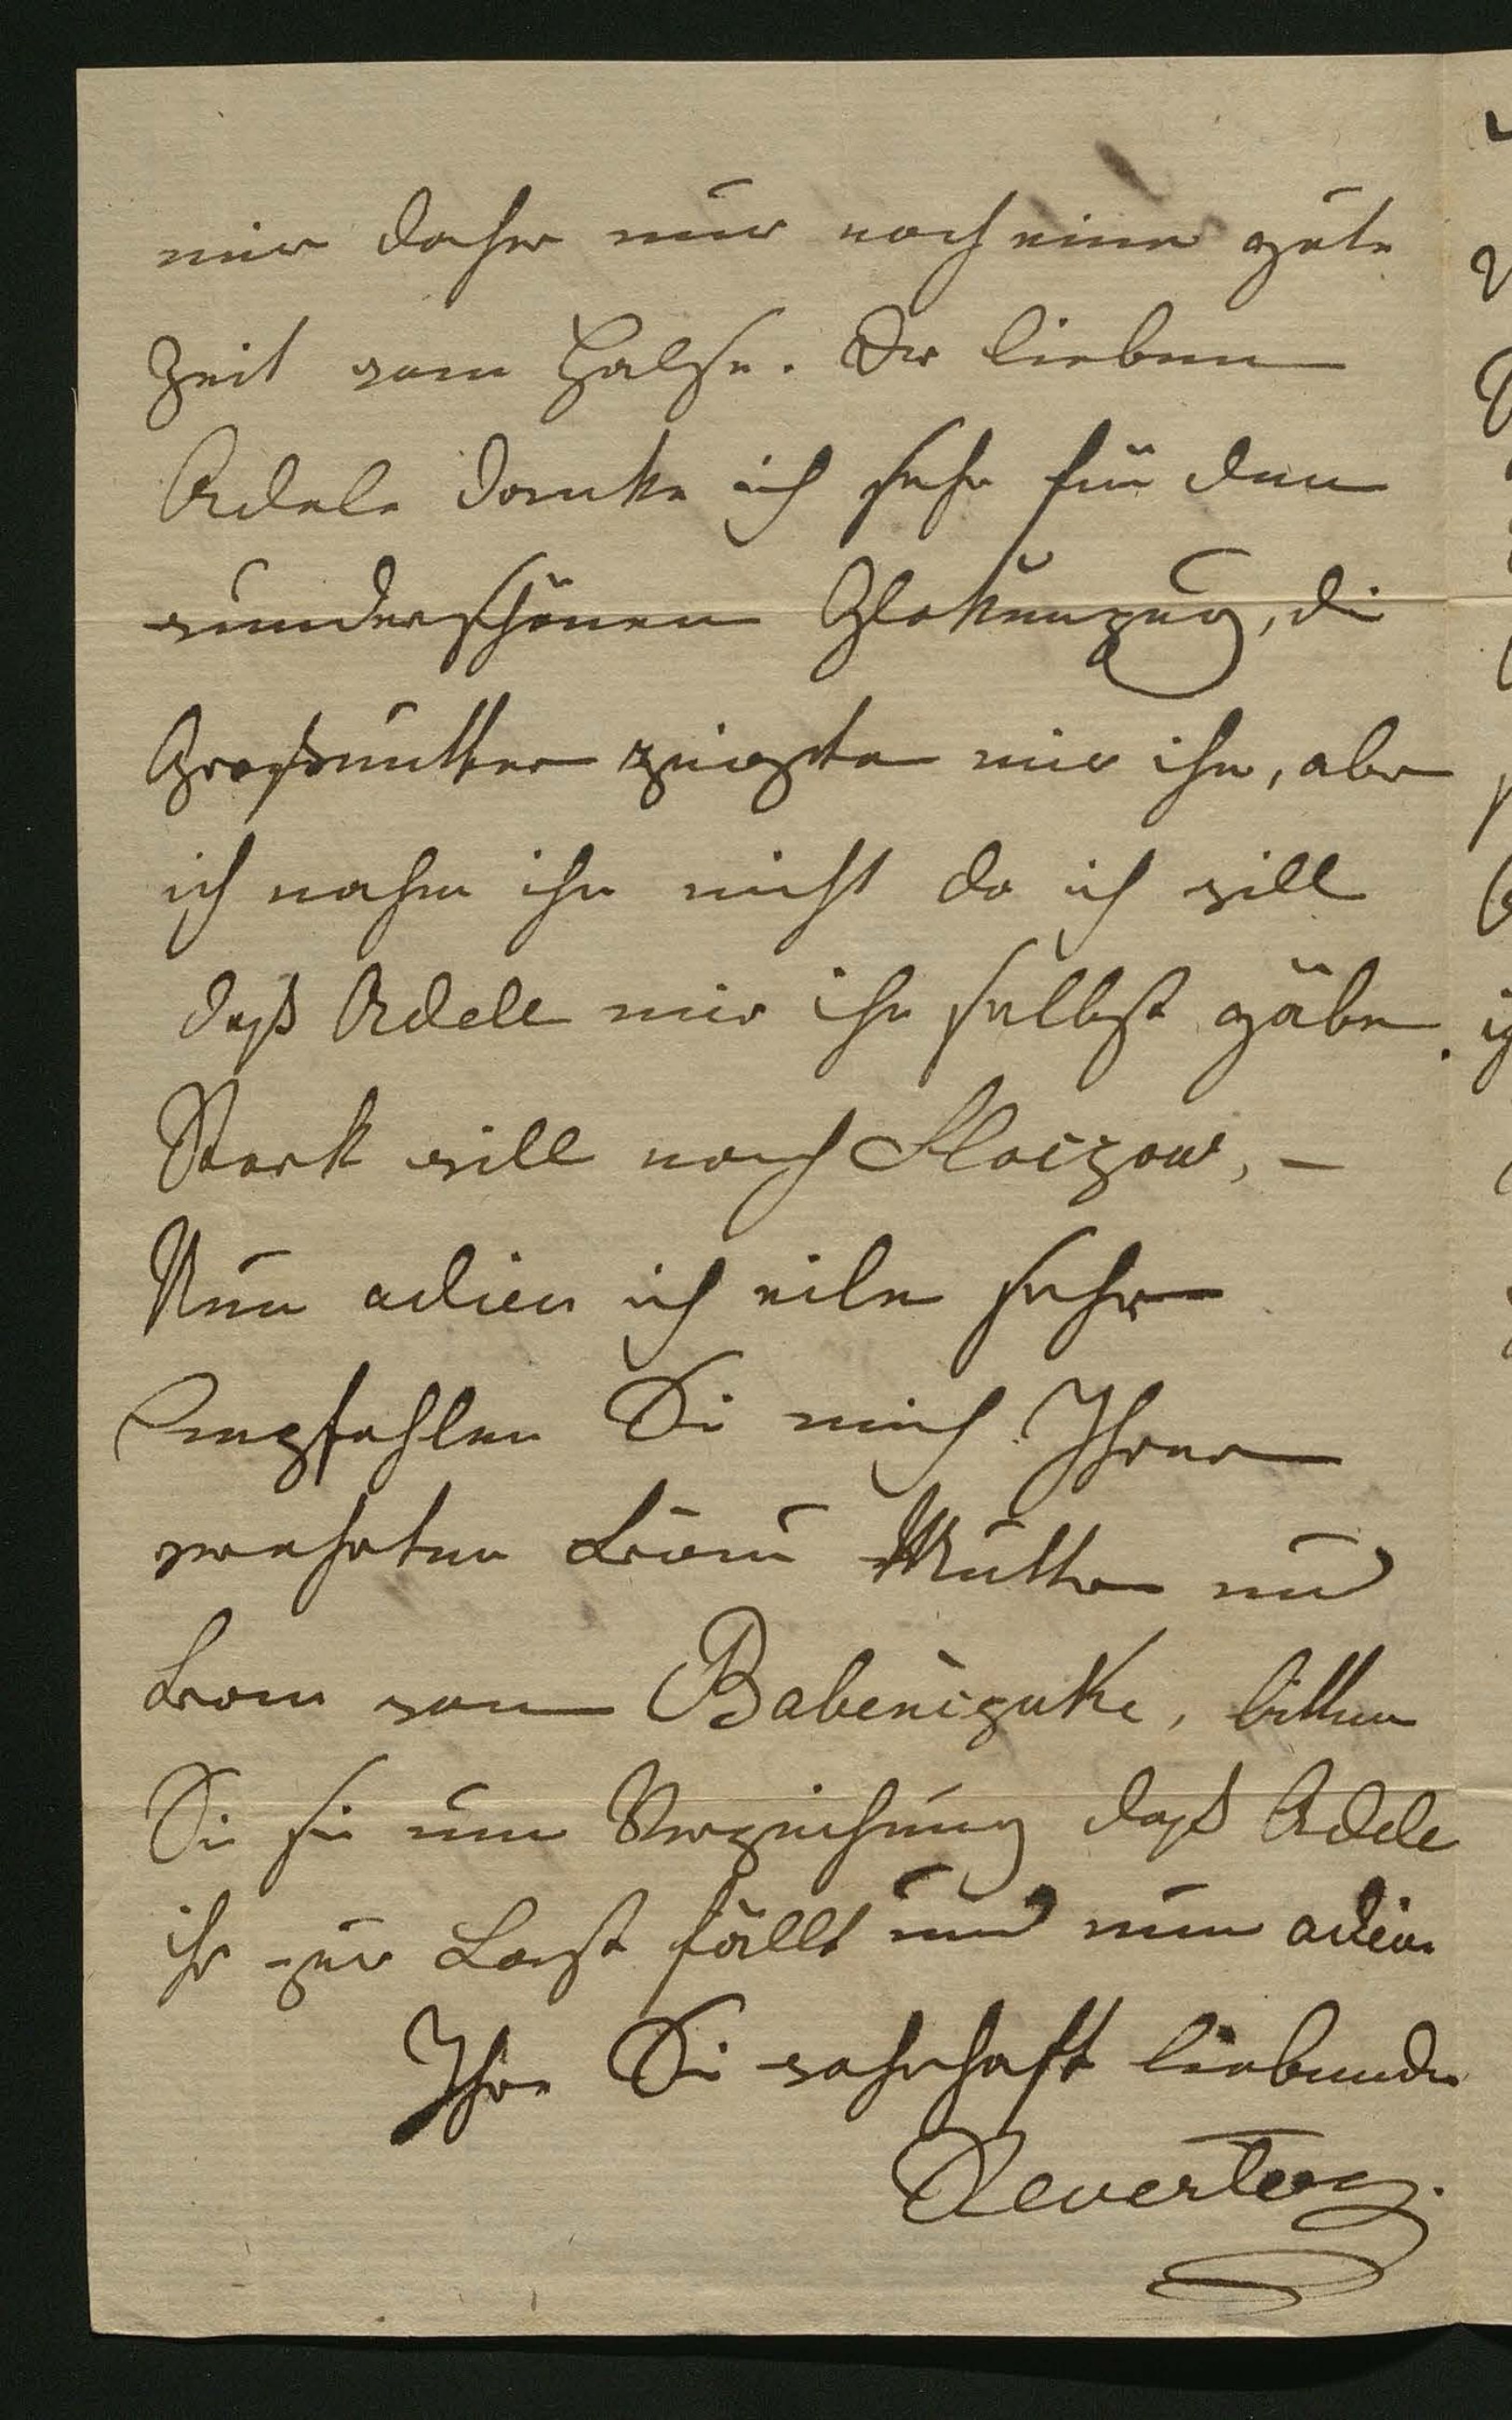 mir daher nur noch eine gute
Zeit vom Halse. Der lieben
Adele danke ich sehr für den
wunderschönen Glokenzug, die
Großmutter zeigte mir ihn, aber
ich nahm ihn nicht da ich will
daß Adele mir ihn selbst gäbe.
Stark will nach Kloczow, –
Nun adieu ich eile sehr
Empfehlen Sie mich Ihrer
verehrten Frau Mutter und
Frau von Babenizuke, bitten
Sie sie um Verzeihung daß Adele
ihr zur Last fällt und nun adieu
Ihre Sie wahrhaft liebende
Revertera.